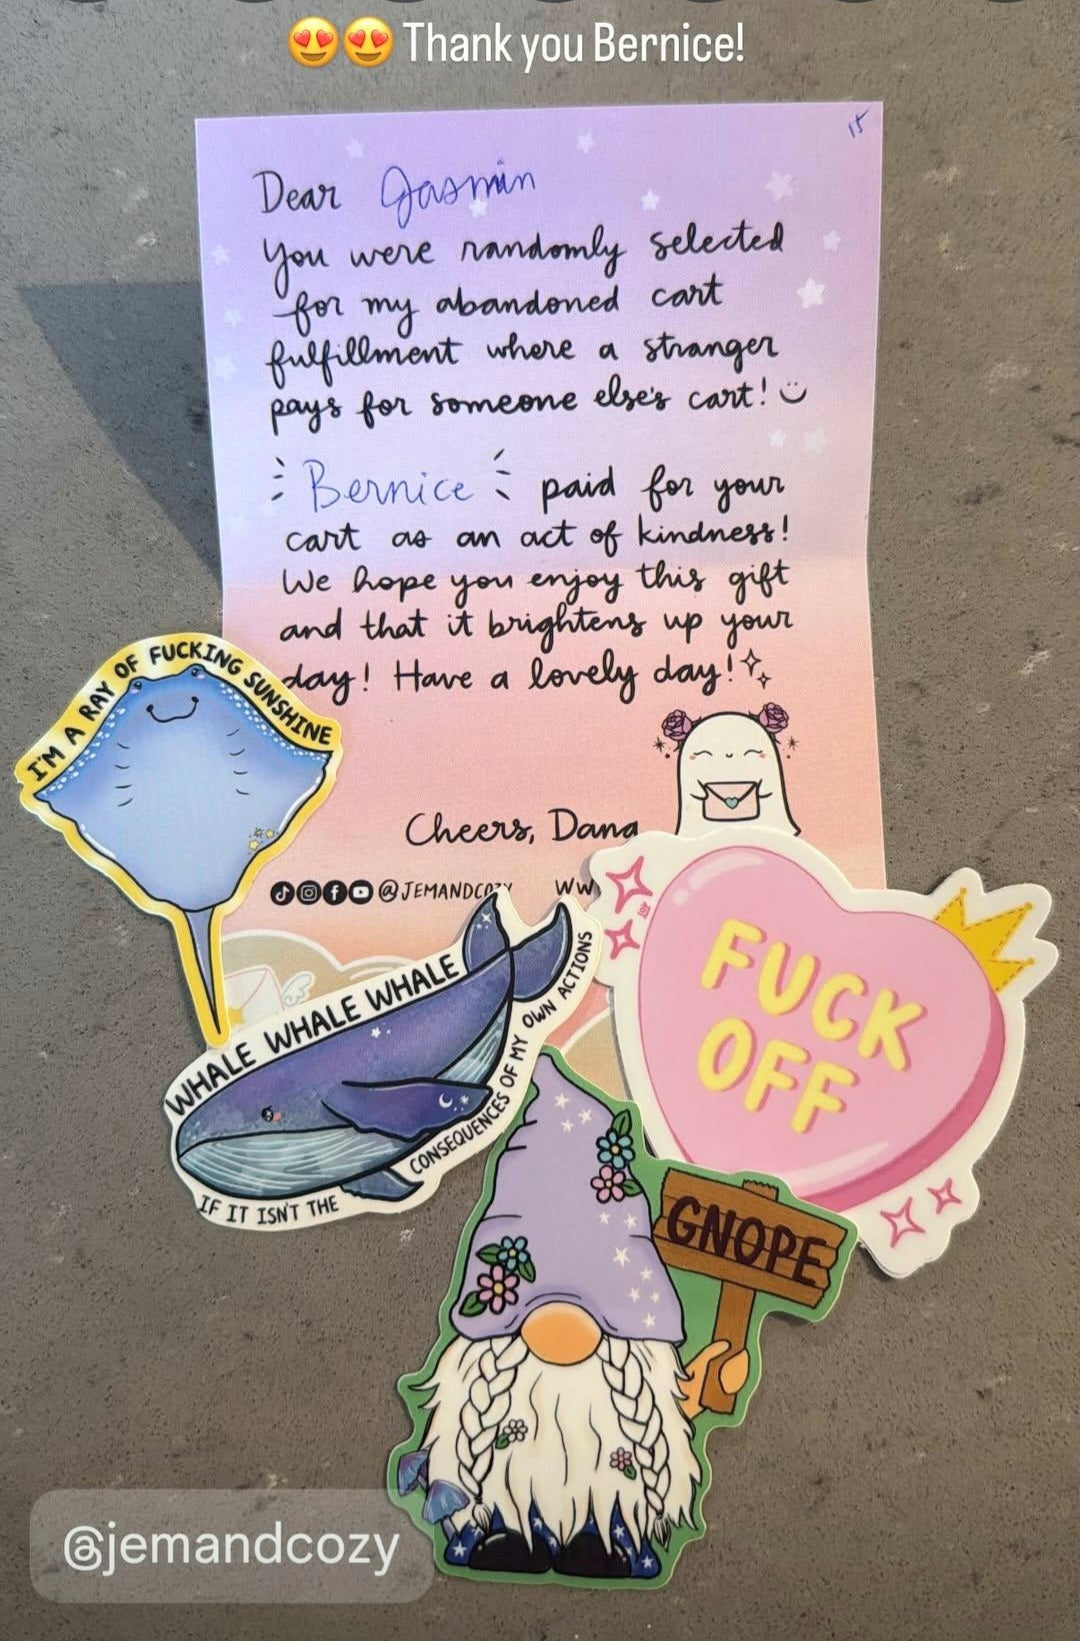 😍😍 Thank you Bernice!
15
Dear Jasmin
You were randomly selected
for my abandoned cart
fulfillment where a stranger
pays for someone else's cart!
Bernice paid for your
cart as an act of kindness!
We hope you enjoy this gift
and that it brightens up your
day! Have a lovely day!
Cheers, Dana
@JEMANDCOZY WW
I'M A RAY OF FUCKING SUNSHINE
WHALE WHALE WHALE
IF IT ISN'T THE
CONSEQUENCES OF MY OWN ACTIONS
FUCK
OFF
GNOPE
@jemandcozy